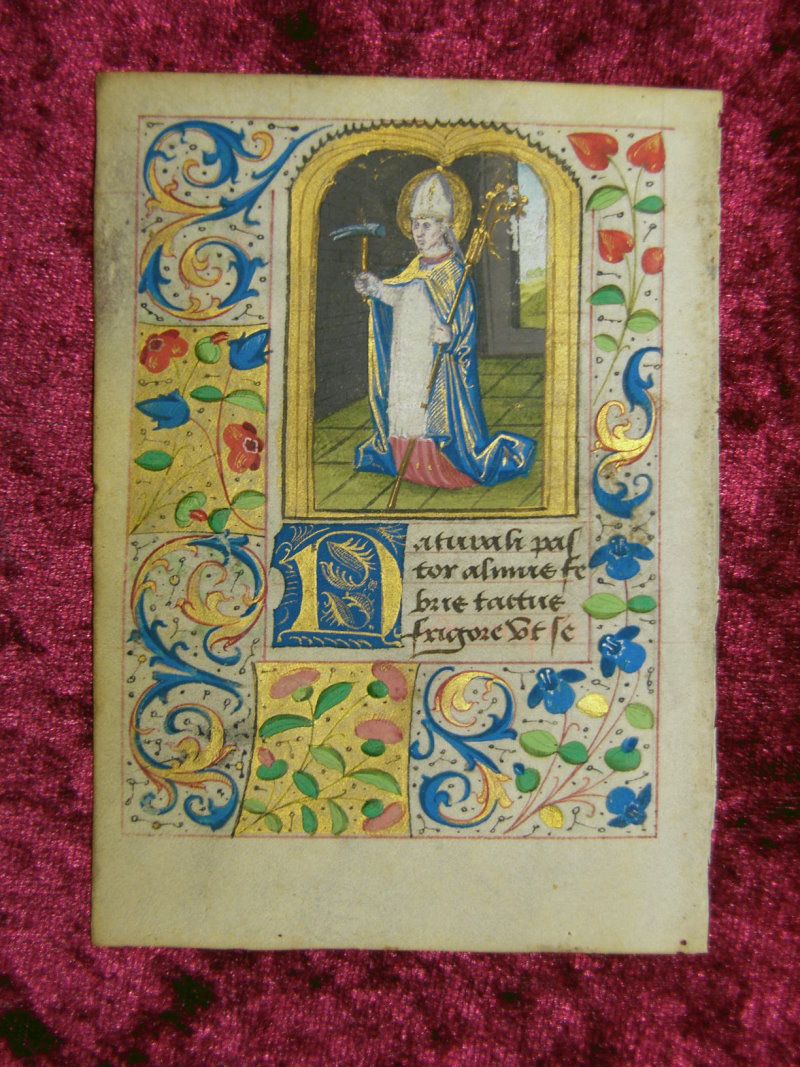 Naturali pas
tor almus fe
bris tactus
frigore Vt se